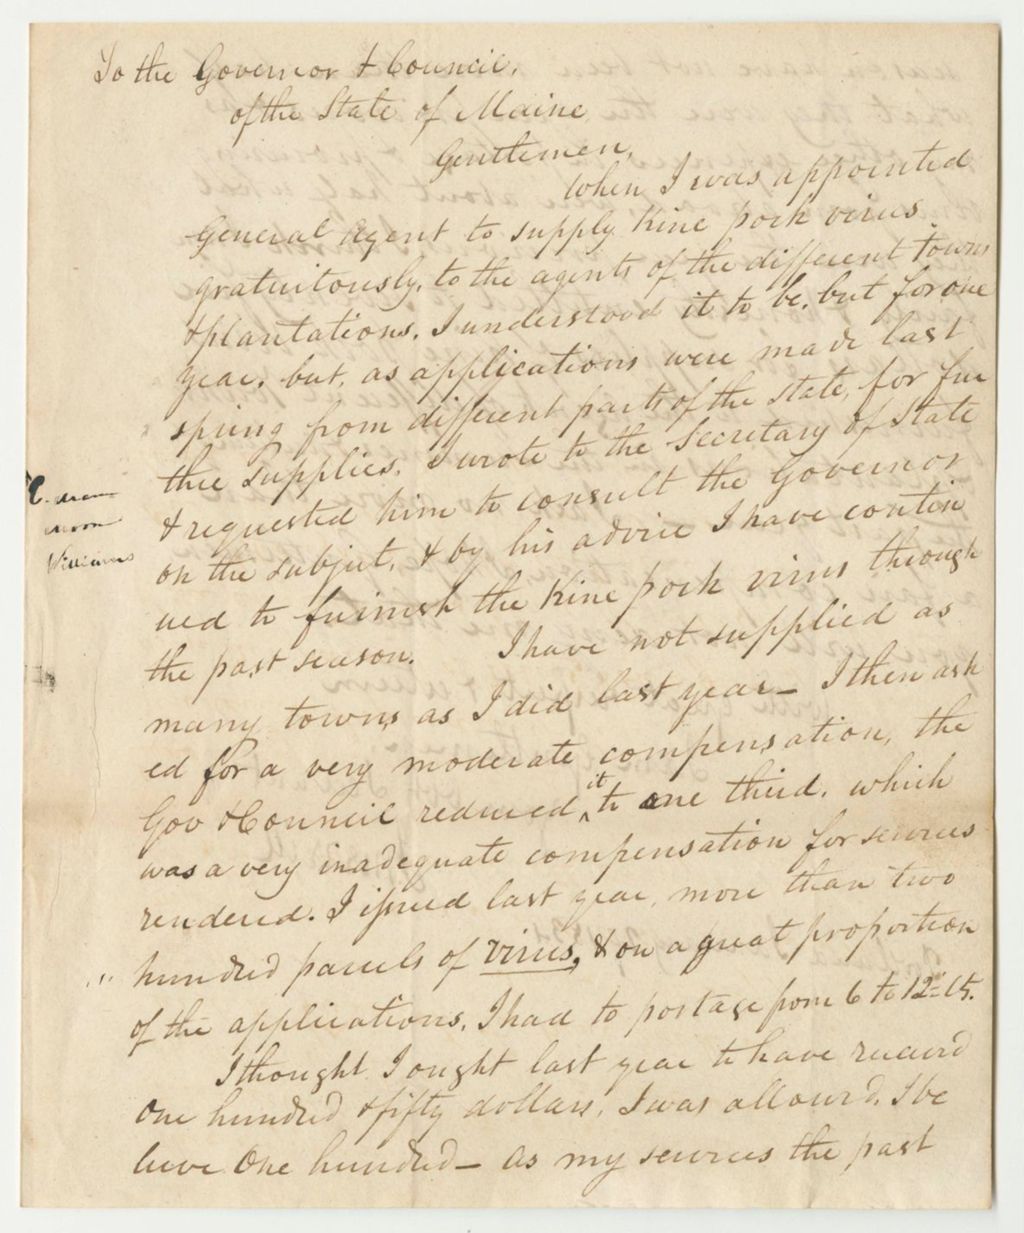 To the Governor & Council,
of the State of Maine
Gentlemen,
When I was appointed
General Agent to supply Kine pock virus
gratuitously, to the agents of the different towns
& plantations, I understood it to be, but for one
year, but, as applications were made last
spring from different parts of the State, for fur
ther supplies, I wrote to the Secretary of State
& requested him to consult the Governor
on the subject, & by his advice I have contin
ued to furnish the Kine pock virus through
the past season. I have not supplied as
many towns as I did last year - I then ask
ed for a very moderate compensation, the
Gov & Council reduced it to one third, which
was a very inadequate compensation for services
rendered. I issued last year, more than two
hundred parcels of virus, & on a great proportion
of the applications, I had to postage from 6 to 12 ct.
I thought I ought last year to have receivd
one hundred & fifty dollars, I was allowed, I be
lieve One hundred - as my services the past
Williams